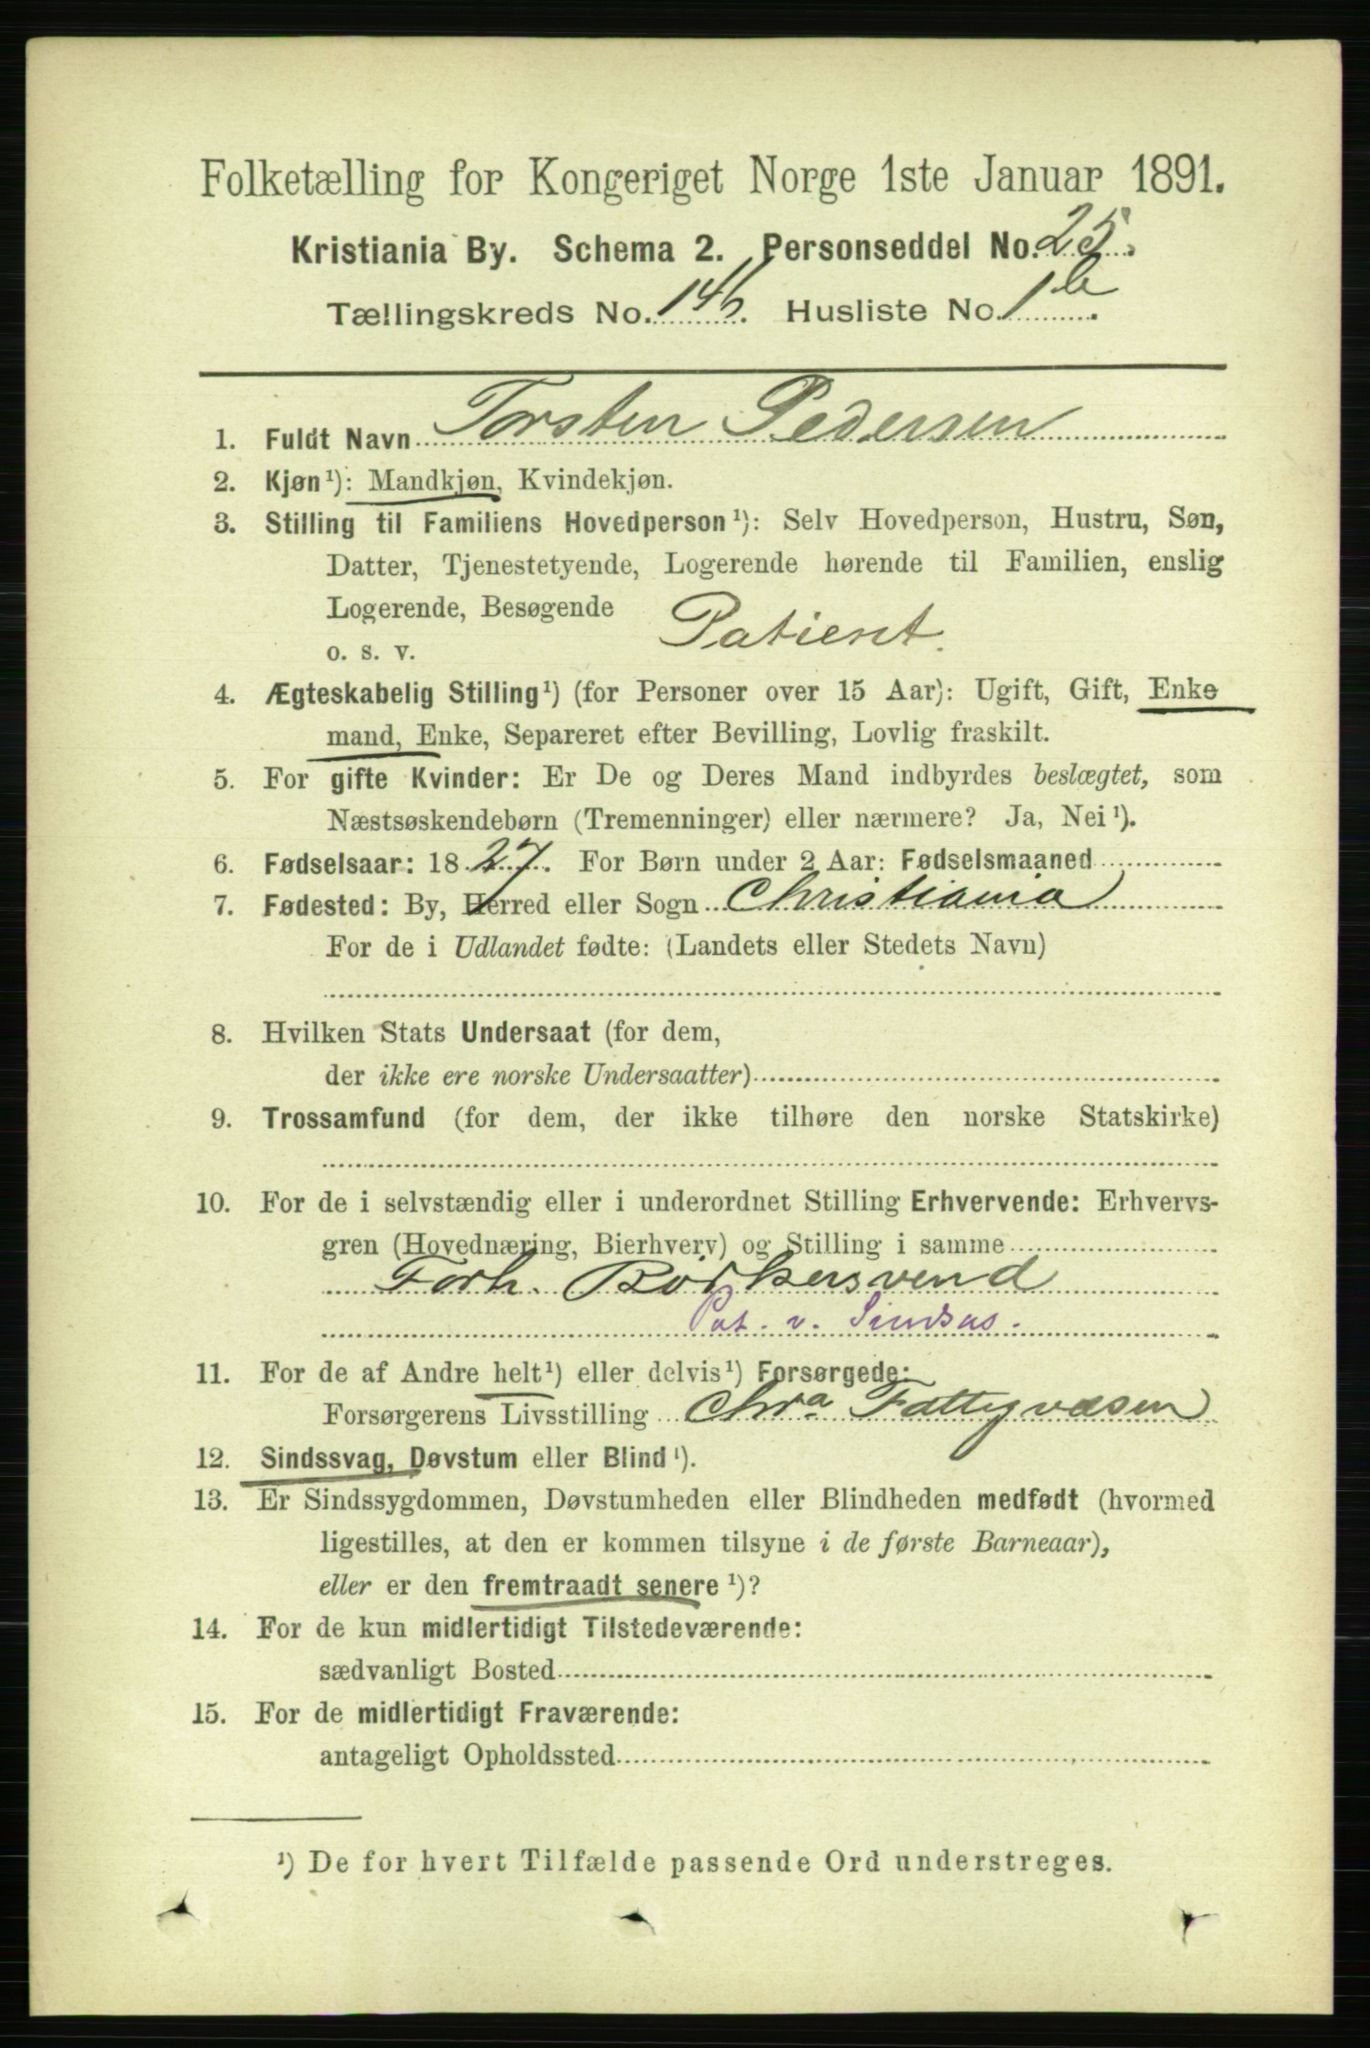 Folketælling for Kongeriget Norge 1ste Januar 1891.
Kristiania By. Schema 2. Personseddel No. 25.
Tællingskreds No. 146. Husliste No. 1b.
1. Fuldt Navn Torsten Pedersen
2. Kjøn¹): Mandkjøn, Kvindekjøn.
3. Stilling til Familiens Hovedperson¹): Selv Hovedperson, Hustru, Søn,
Datter, Tjenestetyende, Logerende hørende til Familien, enslig
Logerende, Besøgende
o. s. v. Patient.
4. Ægteskabelig Stilling¹) (for Personer over 15 Aar): Ugift, Gift, Enke
mand, Enke, Separeret efter Bevilling, Lovlig fraskilt.
5. For gifte Kvinder: Er De og Deres Mand indbyrdes beslægtet, som
Næstsøskendebørn (Tremenninger) eller nærmere? Ja, Nei¹).
6. Fødselsaar: 1827. For Børn under 2 Aar: Fødselsmaaned
7. Fødested: By, Herred eller Sogn Christiania
For de i Udlandet fødte: (Landets eller Stedets Navn)
8. Hvilken Stats Undersaat (for dem,
der ikke ere norske Undersaatter)
9. Trossamfund (for dem, der ikke tilhøre den norske Statskirke)
10. For de i selvstændig eller i underordnet Stilling Erhvervende: Erhvervs-
gren (Hovednæring, Bierhverv) og Stilling i samme
Forh. Bødkersvend
Pat. v. Sindsas.
11. For de af Andre helt¹) eller delvis¹) Forsørgede:
Forsørgerens Livsstilling Chra Fattigvæsen
12. Sindssvag, Døvstum eller Blind¹).
13. Er Sindssygdommen, Døvstumheden eller Blindheden medfødt (hvormed
ligestilles, at den er kommen tilsyne i de første Barneaar),
eller er den fremtraadt senere¹)?
14. For de kun midlertidigt Tilstedeværende:
sædvanligt Bosted
15. For de midlertidigt Fraværende:
antageligt Opholdssted
¹) De for hvert Tilfælde passende Ord understreges.